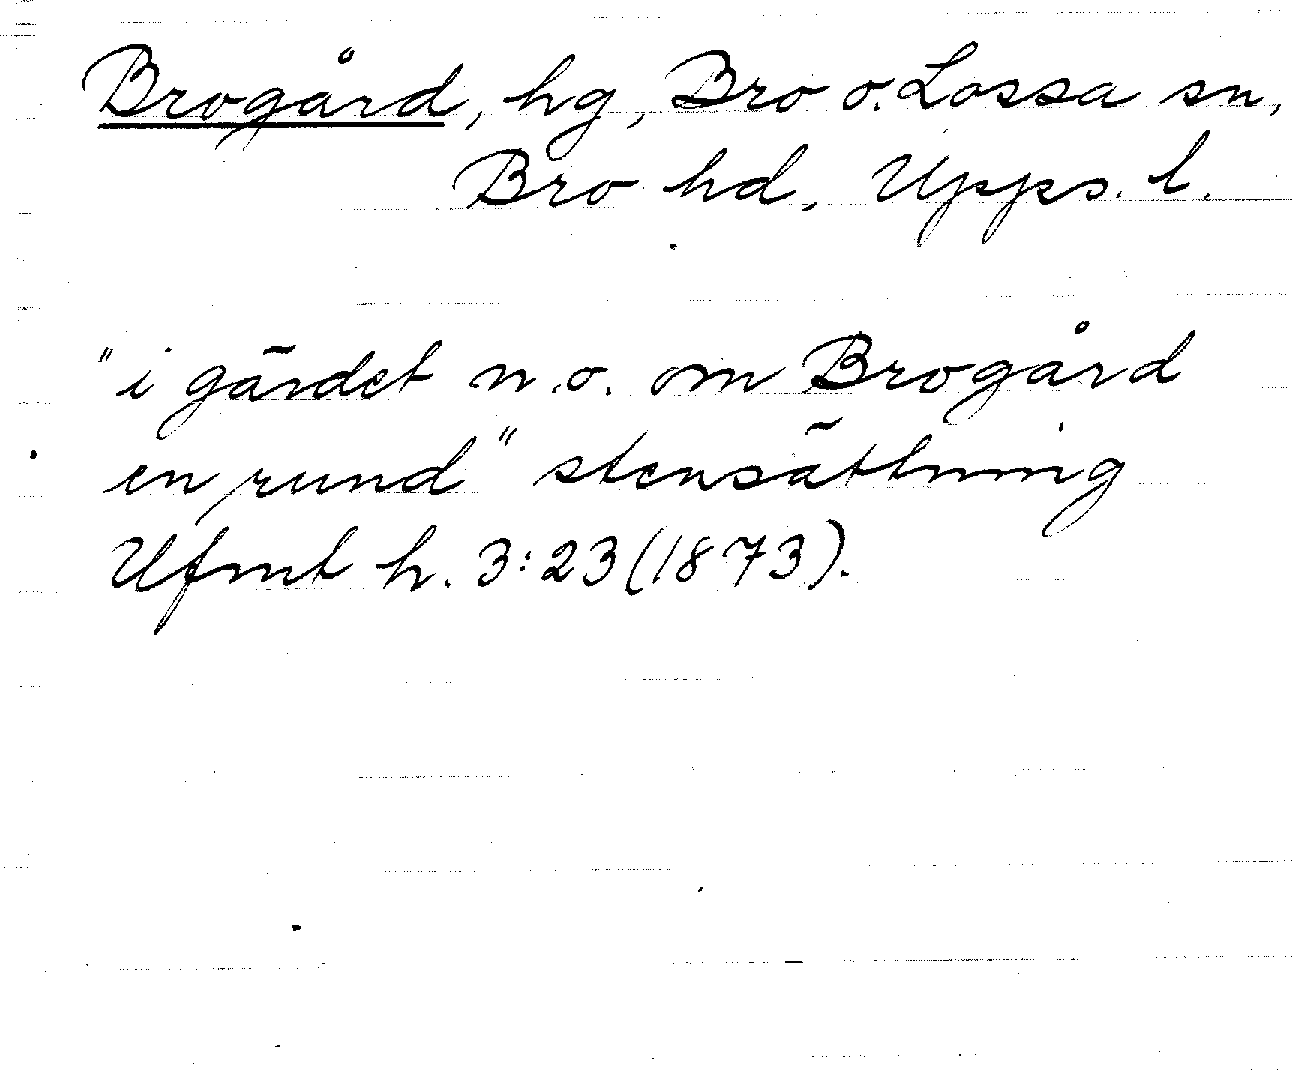 Brogård, hg, Bro o. Lossa sn,
Bro hd, Upps. l.
"i gärdet n.o. om Brogård
en rund" stensättning
Ufmt h. 3:23 (1873).